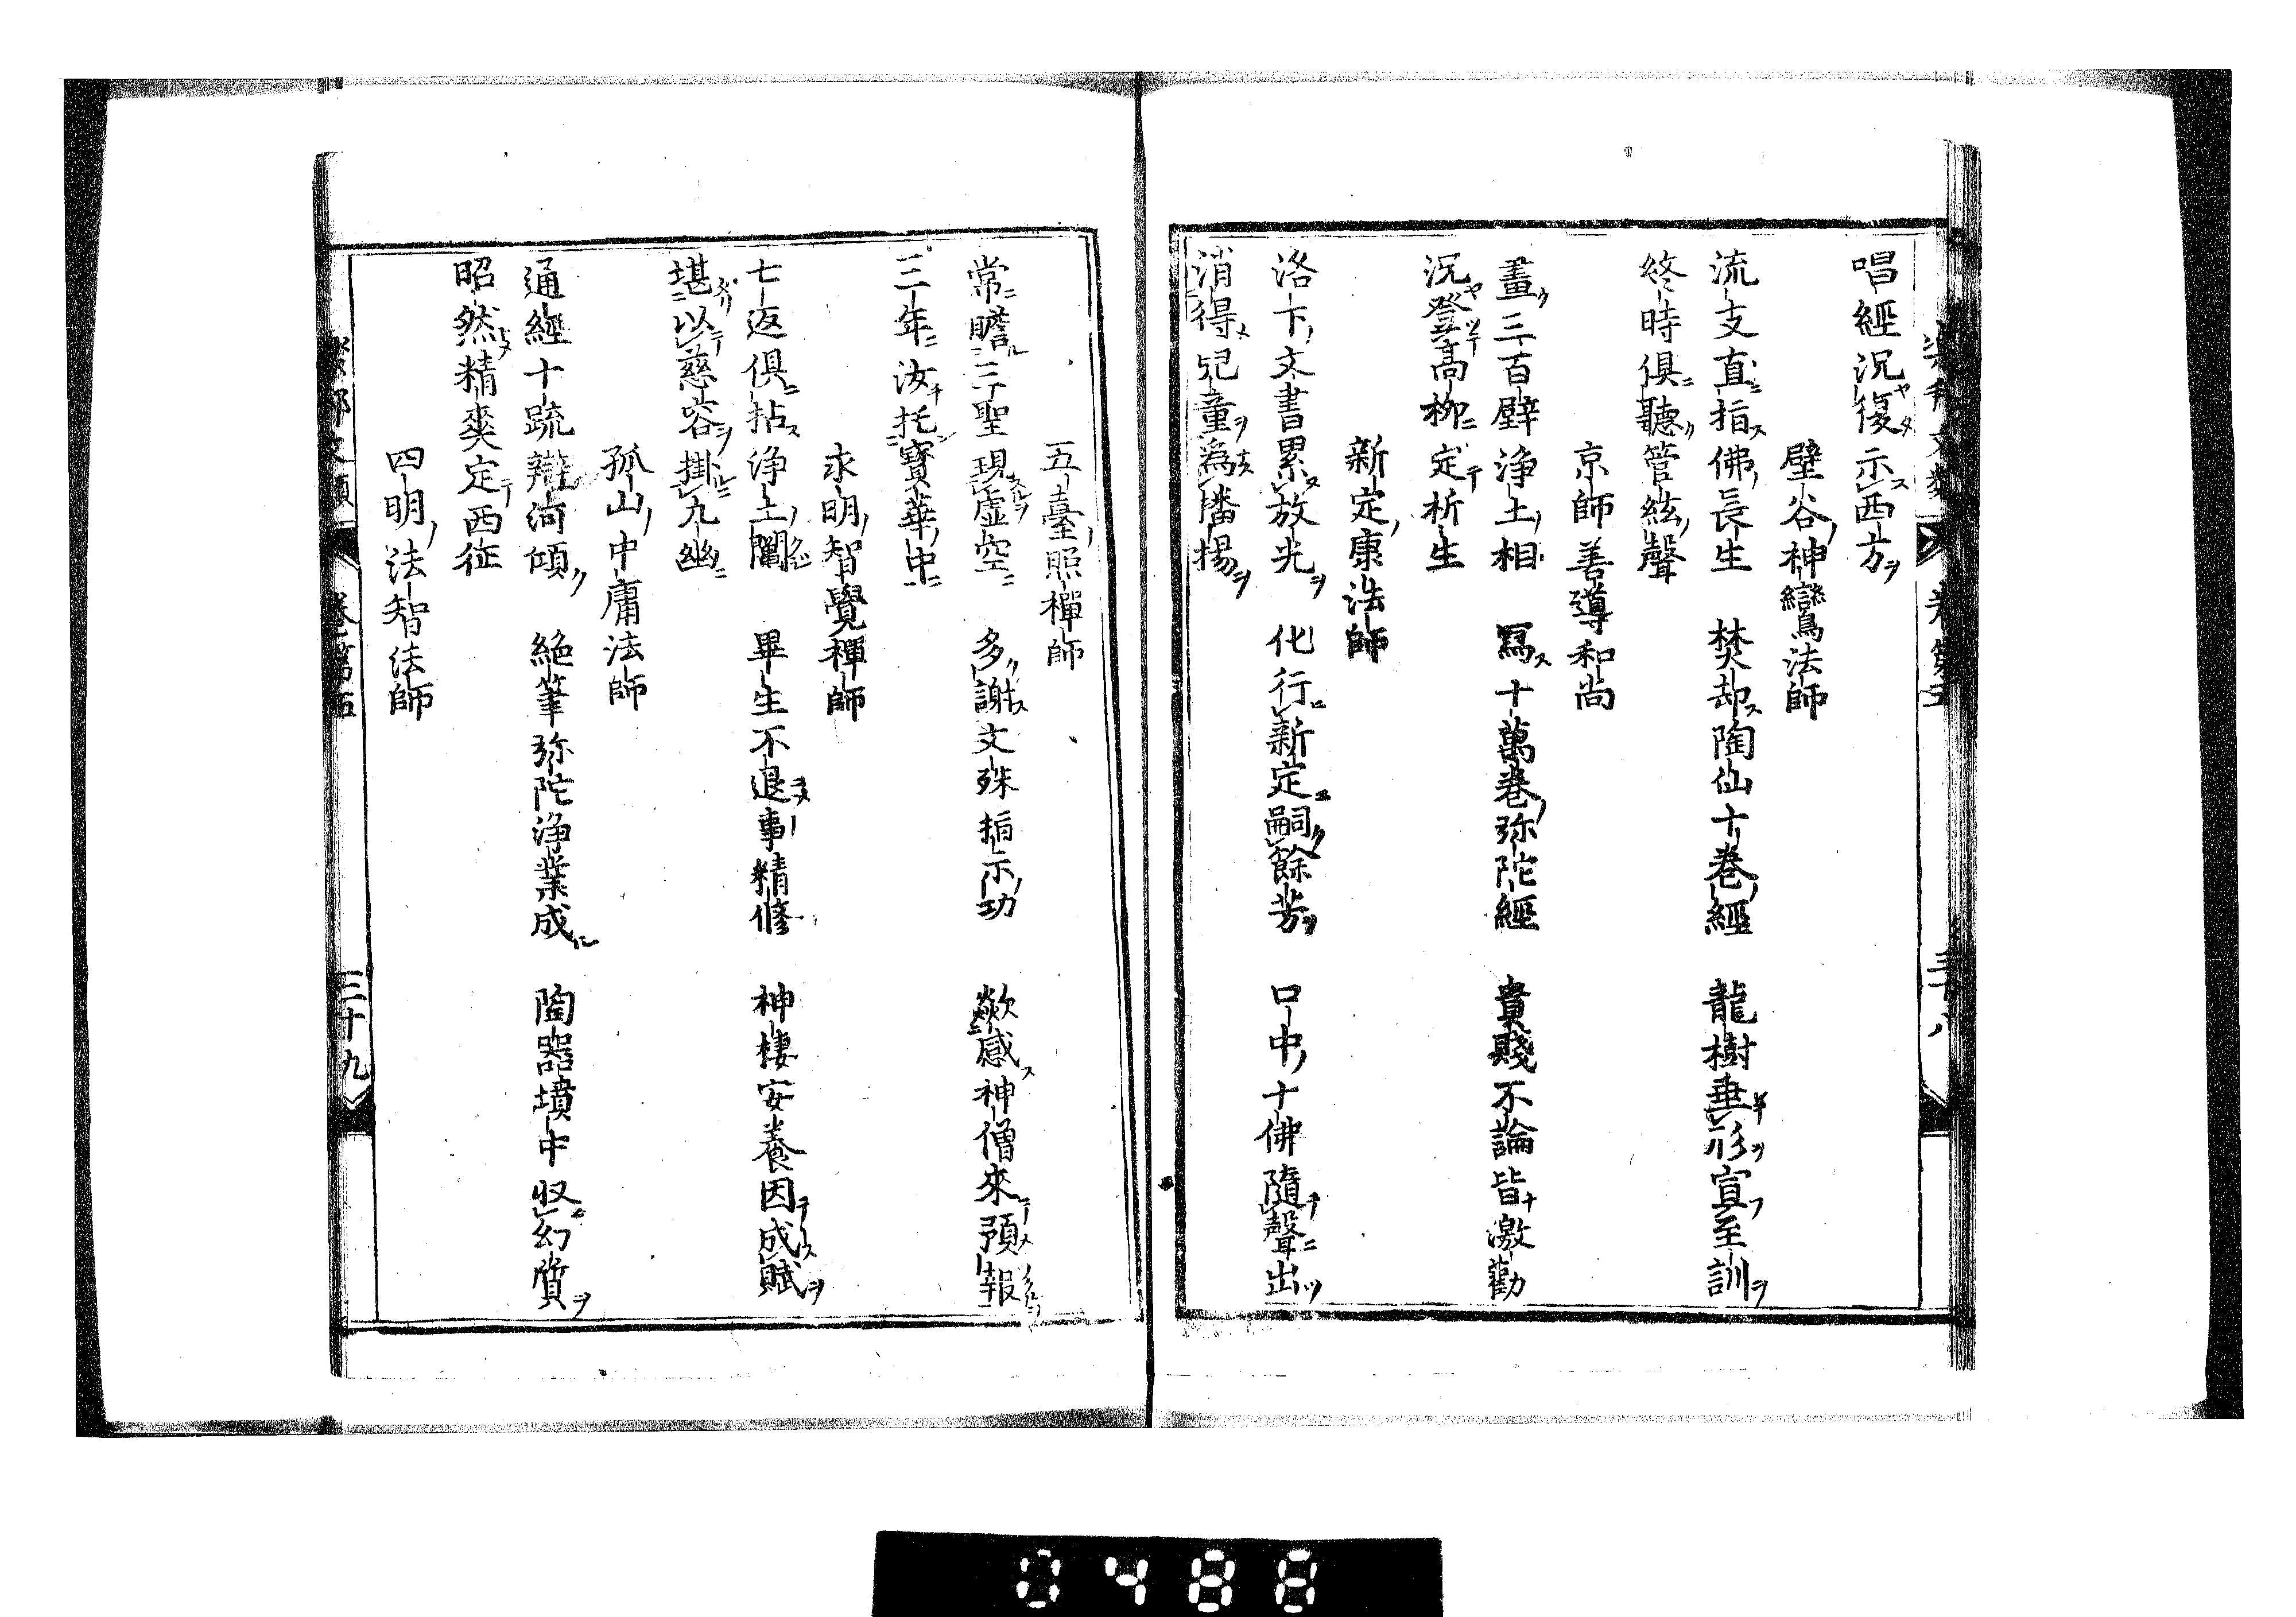 唱經況復示西方
壁谷神鸞法師
流支直指佛長生　焚却陶仙十巻經　龍樹垂形宣至訓
終時俱聽管絃聲
京師善導和尚
畫三百壁浄土相　寫十萬巻弥陀經　貴賤不論皆激勸
況登高柳定析生
新定康法師
洛下文書累放光　化行新定嗣餘芳　口中十佛隨聲出
消得兒童為播揚
五臺照禪師
常瞻二聖現虚空　多謝文殊指示功　歘感神僧來預報
三年汝托寶華中
永明智覺禪師
七返俱拈浄土鬮　畢生不退事精修　神棲安養因成賦
堪以慈容掛九幽
孤山中庸法師
通經十䟽辯河傾　絶筆弥陀浄業成　陶器墳中収幻質
昭然精爽定西征
四明法智法師
樂邦文類　巻第五　三十九
0488